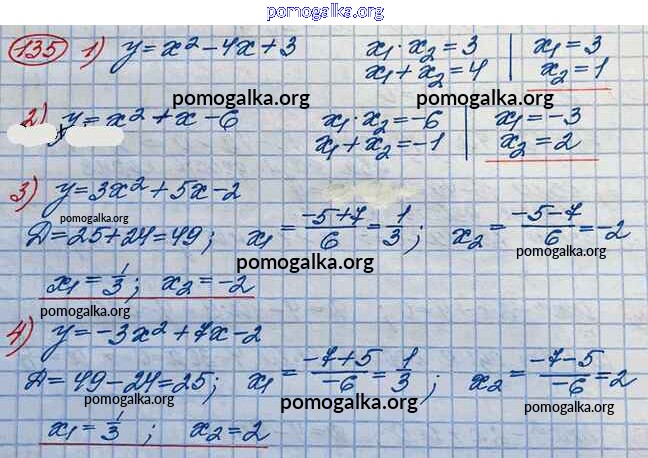 pomogalka.org
135 1) y = x² - 4x + 3 x₁ · x₂ = 3 | x₁ = 3
x₁ + x₂ = 4 | x₂ = 1
pomogalka.org pomogalka.org
2) y = x² + x - 6 x₁ · x₂ = -6 | x₁ = -3
x₁ + x₂ = -1 | x₂ = 2
3) y = 3x² + 5x - 2
pomogalka.org
D = 25 + 24 = 49; x₁ = (-5+7)/6 = 1/3; x₂ = (-5-7)/6 = -2
pomogalka.org pomogalka.org
x₁ = 1/3; x₂ = -2
pomogalka.org pomogalka.org
4) y = -3x² + 7x - 2
D = 49 - 24 = 25; x₁ = (-7+5)/-6 = 1/3; x₂ = (-7-5)/-6 = 2
pomogalka.org pomogalka.org pomogalka.org
x₁ = 1/3; x₂ = 2